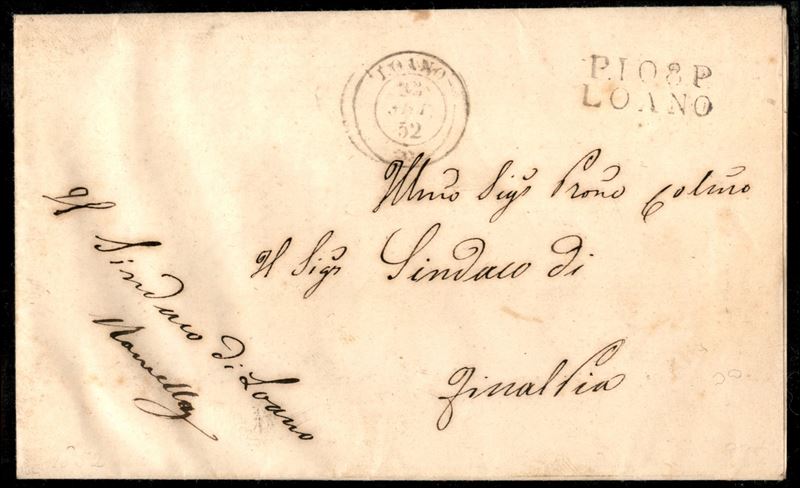 LOANO
22
SET
52
P.108P
LOANO
Illmo Sigr Prone Colmo
Il Sigr Sindaco di
FinalPia
Il Sindaco di Loano